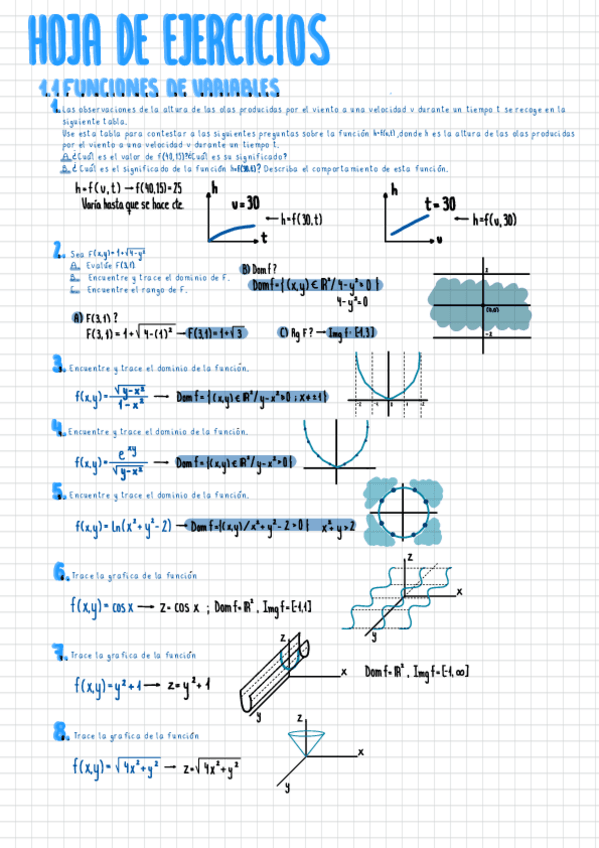 HOJA DE EJERCICIOS
1.1 FUNCIONES DE VARIABLES
1. Las observaciones de la altura de las olas producidas por el viento a una velocidad v durante un tiempo t se recoge en la
siguiente tabla.
Use esta tabla para contestar a las siguientes preguntas sobre la función h=f(v,t), donde h es la altura de las olas producidas
por el viento a una velocidad v durante un tiempo t.
A. ¿Cuál es el valor de f(40,15)? ¿Cuál es su significado?
B. ¿Cuál es el significado de la función h=f(30,t)? Describa el comportamiento de esta función.
h=f(v,t) → f(40,15)=25
Varía hasta que se hace cte.
h
v=30
← h=f(30,t)
t
h
t=30
← h=f(v,30)
v
2. Sea F(x,y)=1+√4-y²
A. Evalúe F(3,1)
B. Encuentre y trace el dominio de F.
C. Encuentre el rango de F.
B) Dom f?
Dom f={(x,y)∈ℝ²/4-y²=0}
4-y²=0
2
(0,0)
-2
A) F(3,1)?
F(3,1)=1+√4-(1)² → F(3,1)=1+√3
C) Rg F? → Img f=[1,3]
3. Encuentre y trace el dominio de la función.
f(x,y)=√y-x²/1-x² → Dom f={(x,y)∈ℝ²/y-x²≥0; x≠±1}
-2 -1 0 1 2
4. Encuentre y trace el dominio de la función.
f(x,y)=e^xy/√y-x² → Dom f={(x,y)∈ℝ²/y-x²>0}
5. Encuentre y trace el dominio de la función.
f(x,y)=Ln(x²+y²-2) → Dom f={(x,y)/x²+y²-2>0} x²+y²>2
6. Trace la grafica de la función
f(x,y)=cos x → z=cos x ; Dom f=ℝ², Img f=[-1,1]
z
x
y
7. Trace la grafica de la función
f(x,y)=y²+1 → z=y²+1
z
x
y
Dom f=ℝ², Img f=[-1,∞]
8. Trace la grafica de la función
f(x,y)=√4x²+y² → z=√4x²+y²
z
x
y